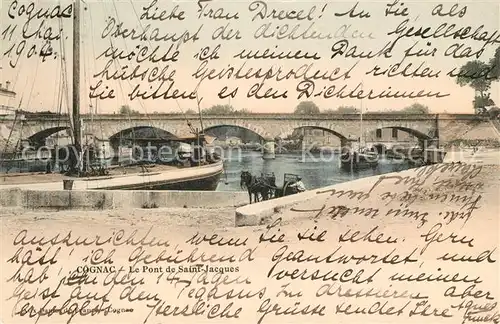 Cognac
11 Mai
1904.
Liebe Frau Drexel! An Sie, als
Oberhaupt der dichtenden Gesellschaft
möchte ich meinen Dank für das
hübsche Geistesproduct richten und
Sie bitten es den Dichterinnen
auszurichten, wenn Sie sie sehen. Gern
hätt ich Gebührend geantwortet und
hab in den 14 Tagen versucht meinen
Geist auf den Pegasus zu dressieren aber
erfolglos. Herzliche Grüsse sendet Ihre
COGNAC — Le Pont de Saint-Jacques
Cognac